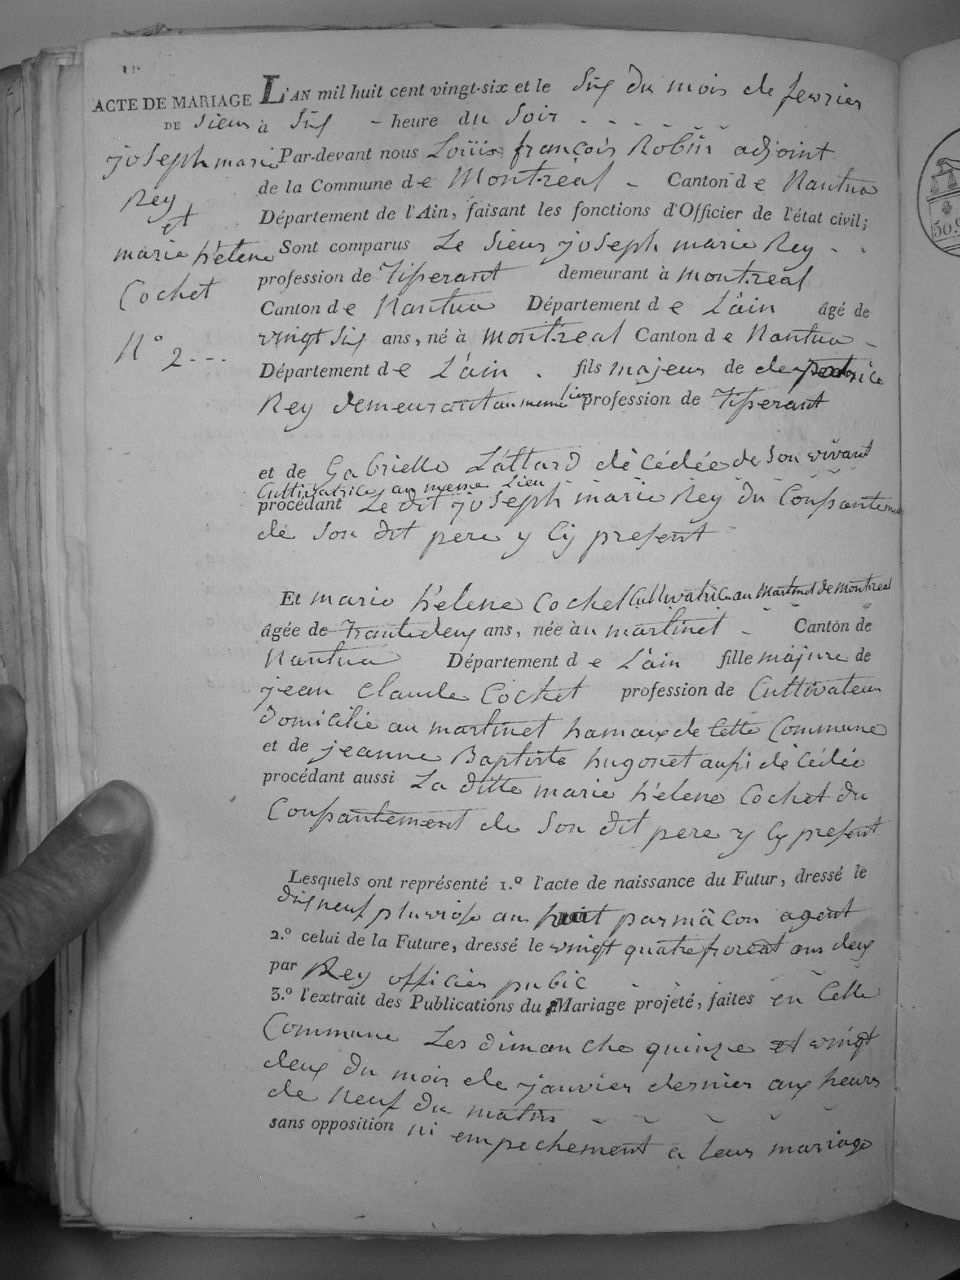 ACTE DE MARIAGE
DE Sieur
joseph marie
Rey
et
marie hélene
Cochet
N° 2 - - -
L'AN mil huit cent vingt-six et le Six du mois de fevrier
à Six - heure du Soir - - - - -
Par-devant nous Loüis françois Robin adjoint
de la Commune de Montreal - Canton de Nantua
Département de l'Ain, faisant les fonctions d'Officier de l'état civil;
Sont comparus Le Sieur joseph marie Rey - -
profession de Tisserant demeurant à montreal
Canton de Nantua Département de L'ain âgé de
vingt Six ans, né à montreal Canton de Nantua -
Département de L'ain - fils majeur de de patrice
Rey demeurant au meme lieu profession de Tisserant
et de Gabrielle Lattard décédée de Son vivant
Cultivatrice au meme Lieu
procédant Le dit joseph marie Rey du Consanteme
de Son dit pere y Cy present
Et marie hélene Cochet Cultivatrice au Martinet de montreal
âgée de Trante deux ans, née au martinet - Canton de
Nantua Département de L'ain fille majure de
jean Claude Cochet profession de Cultivateur
domicilié au martinet hamaux de Cette Commune
et de jeanne Baptiste hugonet aussi décédée
procédant aussi La ditte marie hélene Cochet du
Consantement de Son dit pere y Cy present
Lesquels ont représenté 1.º l'acte de naissance du Futur, dressé le
dix neuf pluviose an huit par mâcon agent
2.º celui de la Future, dressé le vingt quatre floreat ans deux
par Rey officier pubic
3.º l'extrait des Publications du Mariage projeté, faites en Cette
Commune Les dimanche quinze et vingt
deux du mois de janvier dernier aux heurs
de neuf du matin - - - -
sans opposition ni empechement a leur mariage